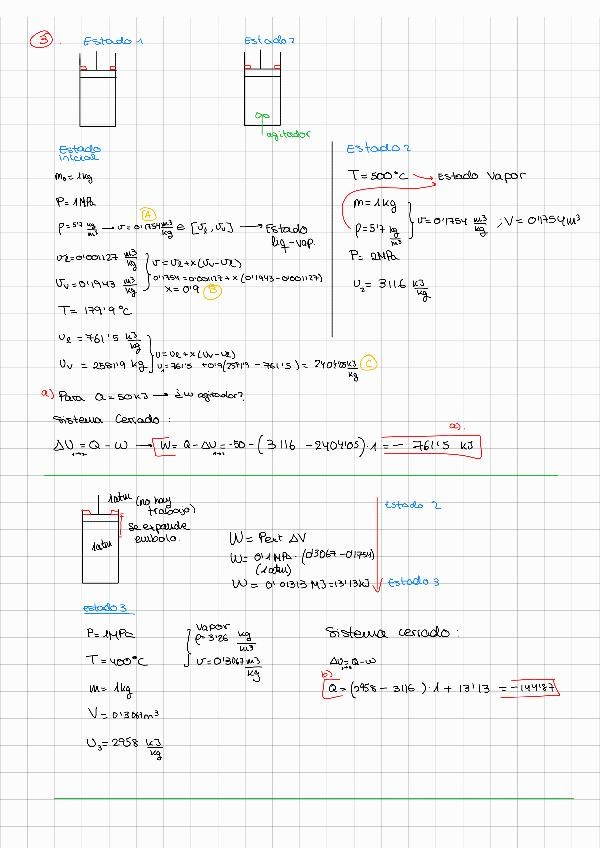 3.
Estado 1
Estado 2
agitador
Estado inicial
m₀ = 1kg
P = 1MPa
ρ = 5'7 kg/m³ → v = 0'1754 m³/kg ∈ [vℓ, vv] → Estado líq-vap.
A
vℓ = 0'001127 m³/kg
vv = 0'1943 m³/kg
v = vℓ + x(vv - vℓ)
0'1754 = 0'001127 + x(0'1943 - 0'001127)
x = 0'9 B
T = 179'9 °C
uℓ = 761'5 kJ/kg
uv = 2581'9 kg
u = uℓ + x(uv - uℓ)
C
Estado 2
T = 500°C → Estado Vapor
m = 1kg
ρ = 5'7 kg/m³
v = 0'1754 m³/kg ; V = 0'1754 m³
u₂ = 3116 kJ/kg
a) Para Q = 50kJ → ¿w agitador?
Sistema Cerrado:
ΔU = Q - W → W = Q - ΔU = -50 - (3116 - 2404'05)·1 = - 761'5 kJ
a).
1atm (no hay trabajo)
se expande embolo.
1atm
W = Pext ΔV
W = 0'1MPa · (0'3067 - 0'1754)
(1atm)
W = 0'01313 MJ = 13'13kJ
Estado 2
Estado 3
estado 3
P = 1MPa
T = 400°C
m = 1kg
V = 0'3067m³
U₃ = 2958 kJ/kg
vapor
ρ = 3'26 kg/m³
v = 0'3067 m³/kg
Sistema cerrado:
ΔU = Q - W
b)
Q = (2958 - 3116) · 1 + 13'13 = -144'87